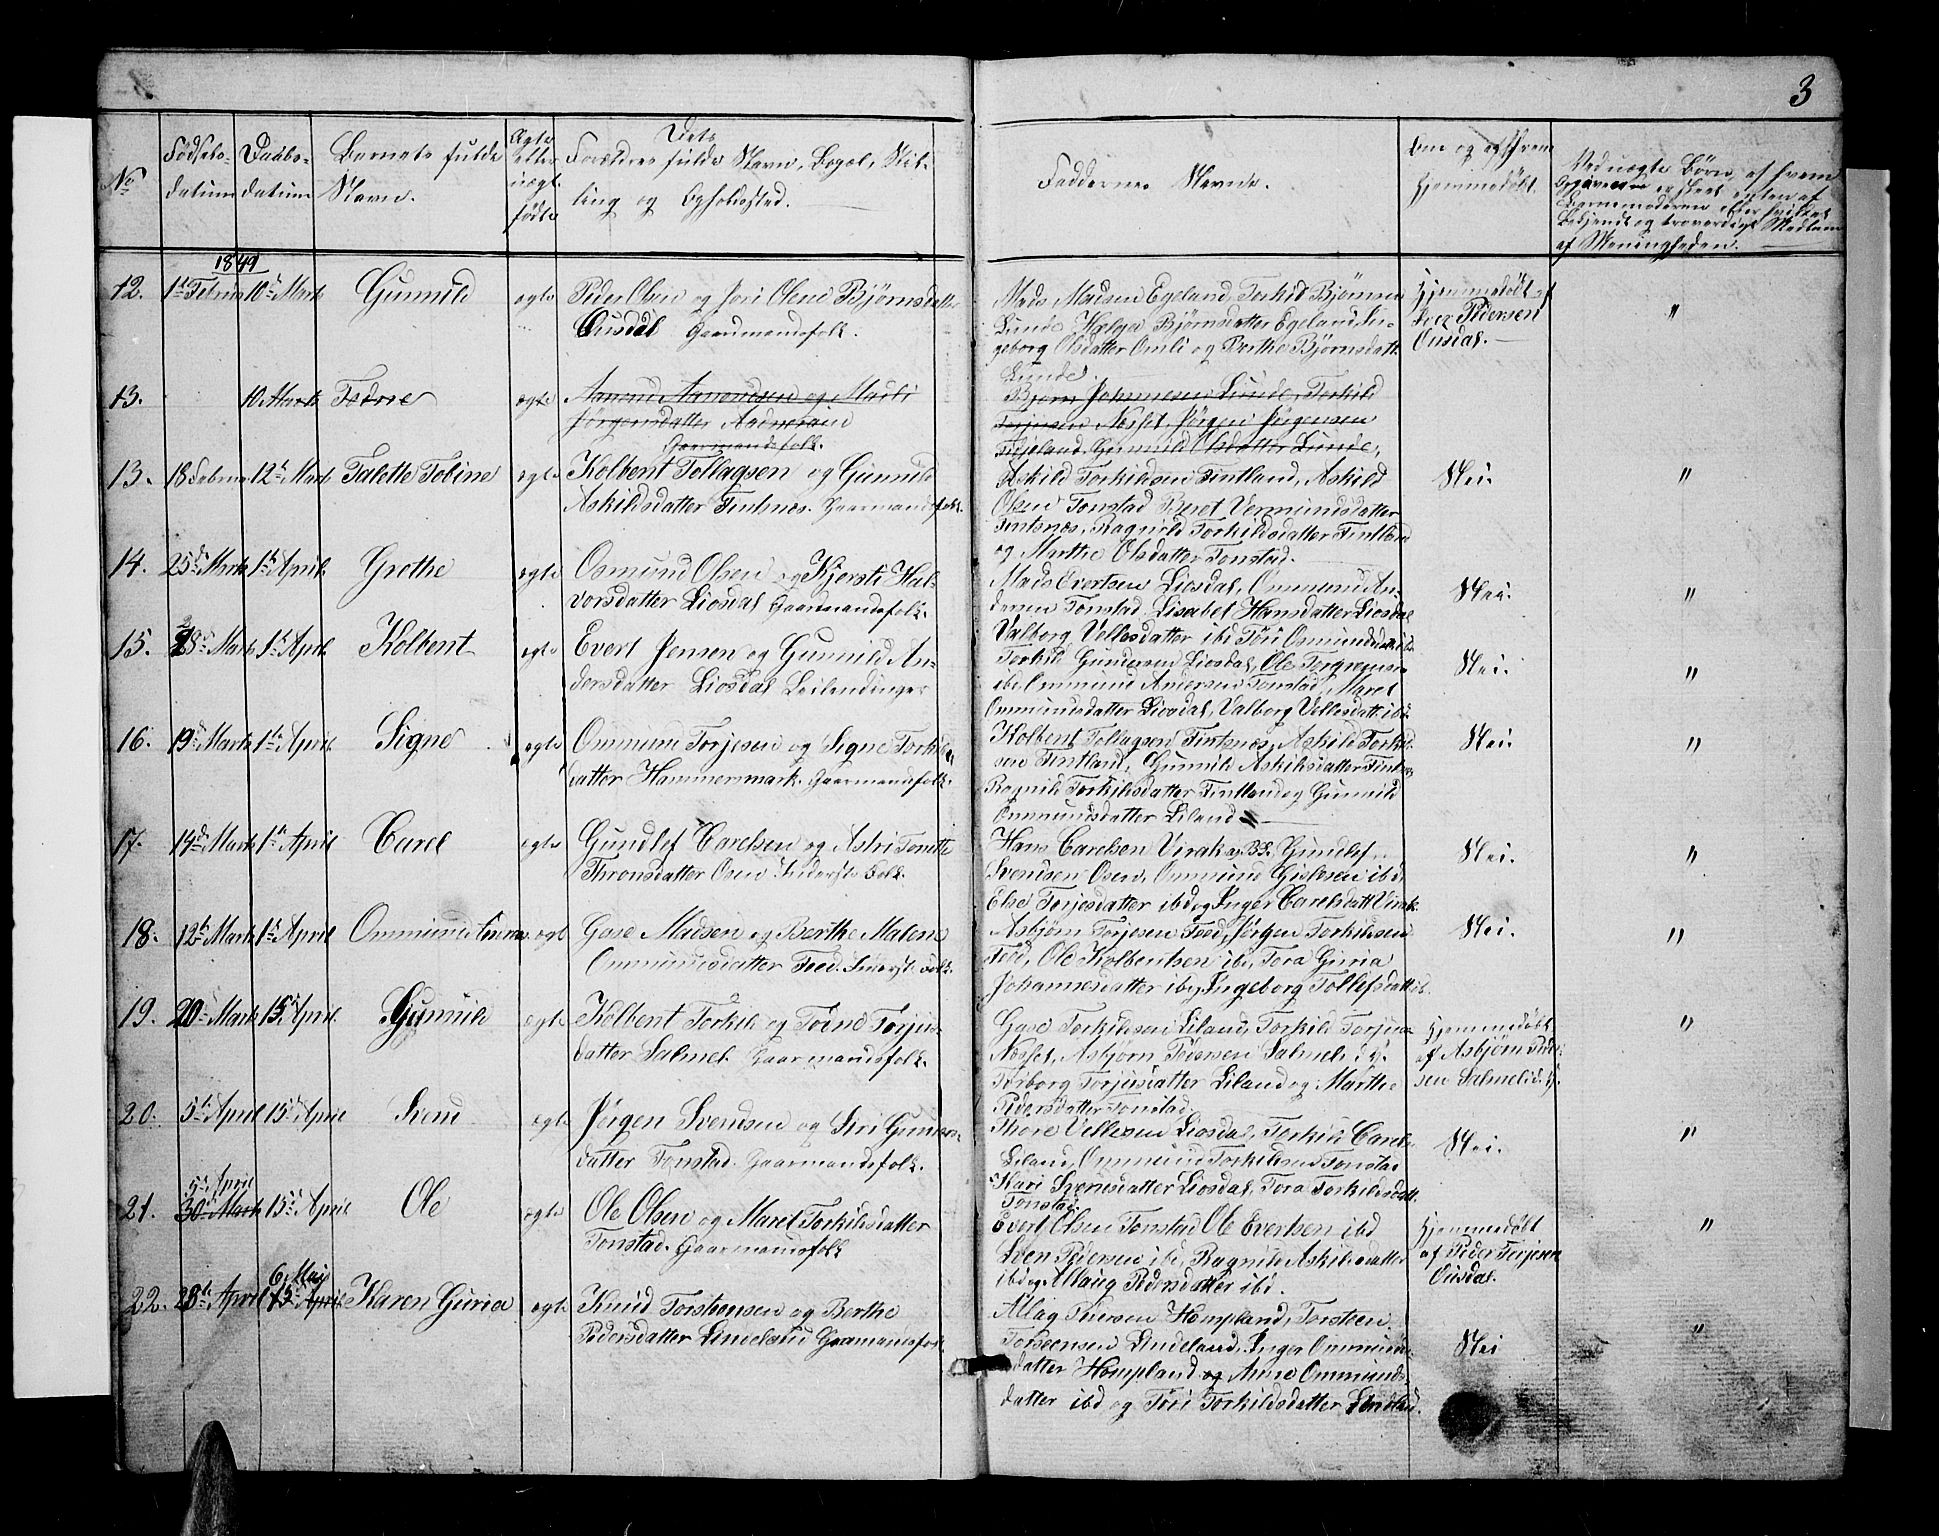 3
No
Fødsels-
datum
Daabs-
datum
Barnets fulde
Navn.
Ægte
eller
uægt.
født
Dets
Forældres fulde Navn, Bopæl, Stil-
ling og Opholdssted.
Faddernes Navne.
Om og af Hvem
Hjemmedøbt.
Ved uægte Børn, af hvem
Opgivelsen er skeet enten af
Barnemoderen eller hvilket
Bekjendt og troværdigt Medlem
af Menigheden.
1849
12. 1ste Februar 10de Marts Gunnild ægte Peder Olsen og Jori Olene Bjørnsdatter
Ousdal Gaardmandsfolk.
Mads Madsen Egeland, Torkild Bjørnsen
Lunde Helga Bjørnsdatter Egeland, In-
geborg Olsdatter Omli og Berthe Bjørnsdatt.
Lunde.
Hjemmedøbt af
Iver Pedersen
Ousdal.
"
13. 10 Marts Tedne ægte Aanond Aanondsen og Marli
Jørgensdatter
Gaarmandsfolk.
Bjørn Johannesen Lunde, Torkild
Torjusen Nesset, Jørgen Jørgensen
Fidjeland, Gunnild Olsdatter Lunde,
13. 18 Februar 12te Marts Talette Tobine ægte Kolbent Tollagsen og Gunnild
Askildsdatter Fintsnes. Gaarmandsfolk.
Askild Torkildsen Fintland, Askild
Olsen Tonstad Beret Vermundsdatter
Fintsnes, Ragnild Torkildsdatter Fintland
og Marthe Olsdatter Tonstad.
Nei.
"
14. 25de Marts 1ste April. Grethe ægte Osmund Olsen og Kjersti Hal-
vorsdatter Liosdal Gaardmandsfolk.
Mads Evertsen Liosdal, Ommund An-
dersen Tonstad, Lisabet Hansdatter Liosdal
Valborg Vellesdatter ibd Tori Osmundsdatt ibd
Nei.
"
15. 28de Marts 1ste April. Kolbent ægte Evert Jensen og Gunnild An-
dersdatter Liosdal Leilendinger
Torkild Gundersen Liosdal, Ole Torgrimsen
ibd, Ommund Andersen Tonstad, Maret
Ommundsdatter Liosdal, Valborg Vellesdatt ibd.
Nei.
"
16. 19de Marts 1ste April. Signe ægte Ommund Torjesen og Signe Torkilds-
datter Hammermark. Gaarmandsfolk.
Kolbent Tollagsen Fintsnes, Askild Torkild-
sen Fintland, Gunnild Askildsdatter Fintsnes
Ragnild Torkildsdatter Fintland og Gunnild
Ommundsdatter Liland
Nei.
"
17. 14de Marts 1ste April Carel ægte Gundlef Carelsen og Astri Tonette
Thronsdatter Osen Inderste Folk.
Hans Carelsen Virak Gundlef
Svendsen Osen, Ommund Gislesen ibd
Else Torjesdatter ibd og Inger Carelsdatt Virak.
Nei.
"
18. 12te Marts 1ste April Ommund ægte Gose Madsen og Berthe Malene
Ommundsdatter Feed. Inderste Folk.
Asbjørn Torjesen Feed, Jørgen Torkildsen
Feed, Ole Kolbentsen ibd, Tora Guria
Johannesdatter ibd, Ingeborg Tollefsdatt ibd.
Nei.
"
19. 20de Marts 15de April. Gunnild ægte Kolbent Torkilds og Torine Torjus-
datter Salmel. Gaarmandsfolk.
Gose Torkildsen Liland, Torkild Torjusen
Nesset, Asbjørn Pedersen Salmeli
Torborg Torjusdatter Liland og Marthe
Pedersdatter Tonstad.
Hjemmedøbt
af Asbjørn Peder-
sen Salmeli
"
20. 5te April 15de April Svend ægte Jørgen Svendsen og Siri Gunders-
datter Tonstad. Gaarmandsfolk.
Thore Vellesen Liosdal, Torkild Carels.
Liland, Ommund Torkildsen Tonstad
Kari Svensdatter Liosdal, Tora Torkildsdatt.
Tonstad.
Nei.
"
21. 5te April
30te Marts 15de April Ole ægte Ole Olsen og Maret Torkildsdatter
Tonstad. Gaarmandsfolk
Evert Olsen Tonstad Ole Evertsen ibd
Sven Pedersen ibd, Ragnild Askildsdatter
ibd og Allaug Pedersdatter ibd.
Hjemmedøbt
af Peder Torjesen
Ousdal.
"
22. 28te April 6 Mai
15 April Karen Guria ægte Knud Torstensen og Berthe
Pedersdatter Lindeland Gaarmandsfolk.
Allag Iversen Hompland, Torsteen
Torsteensen Lindeland, Inger Ommunds-
datter Hompland og Anne Ommunds-
datter ibd og Tori Torkildsdatter Lindland.
Nei
"